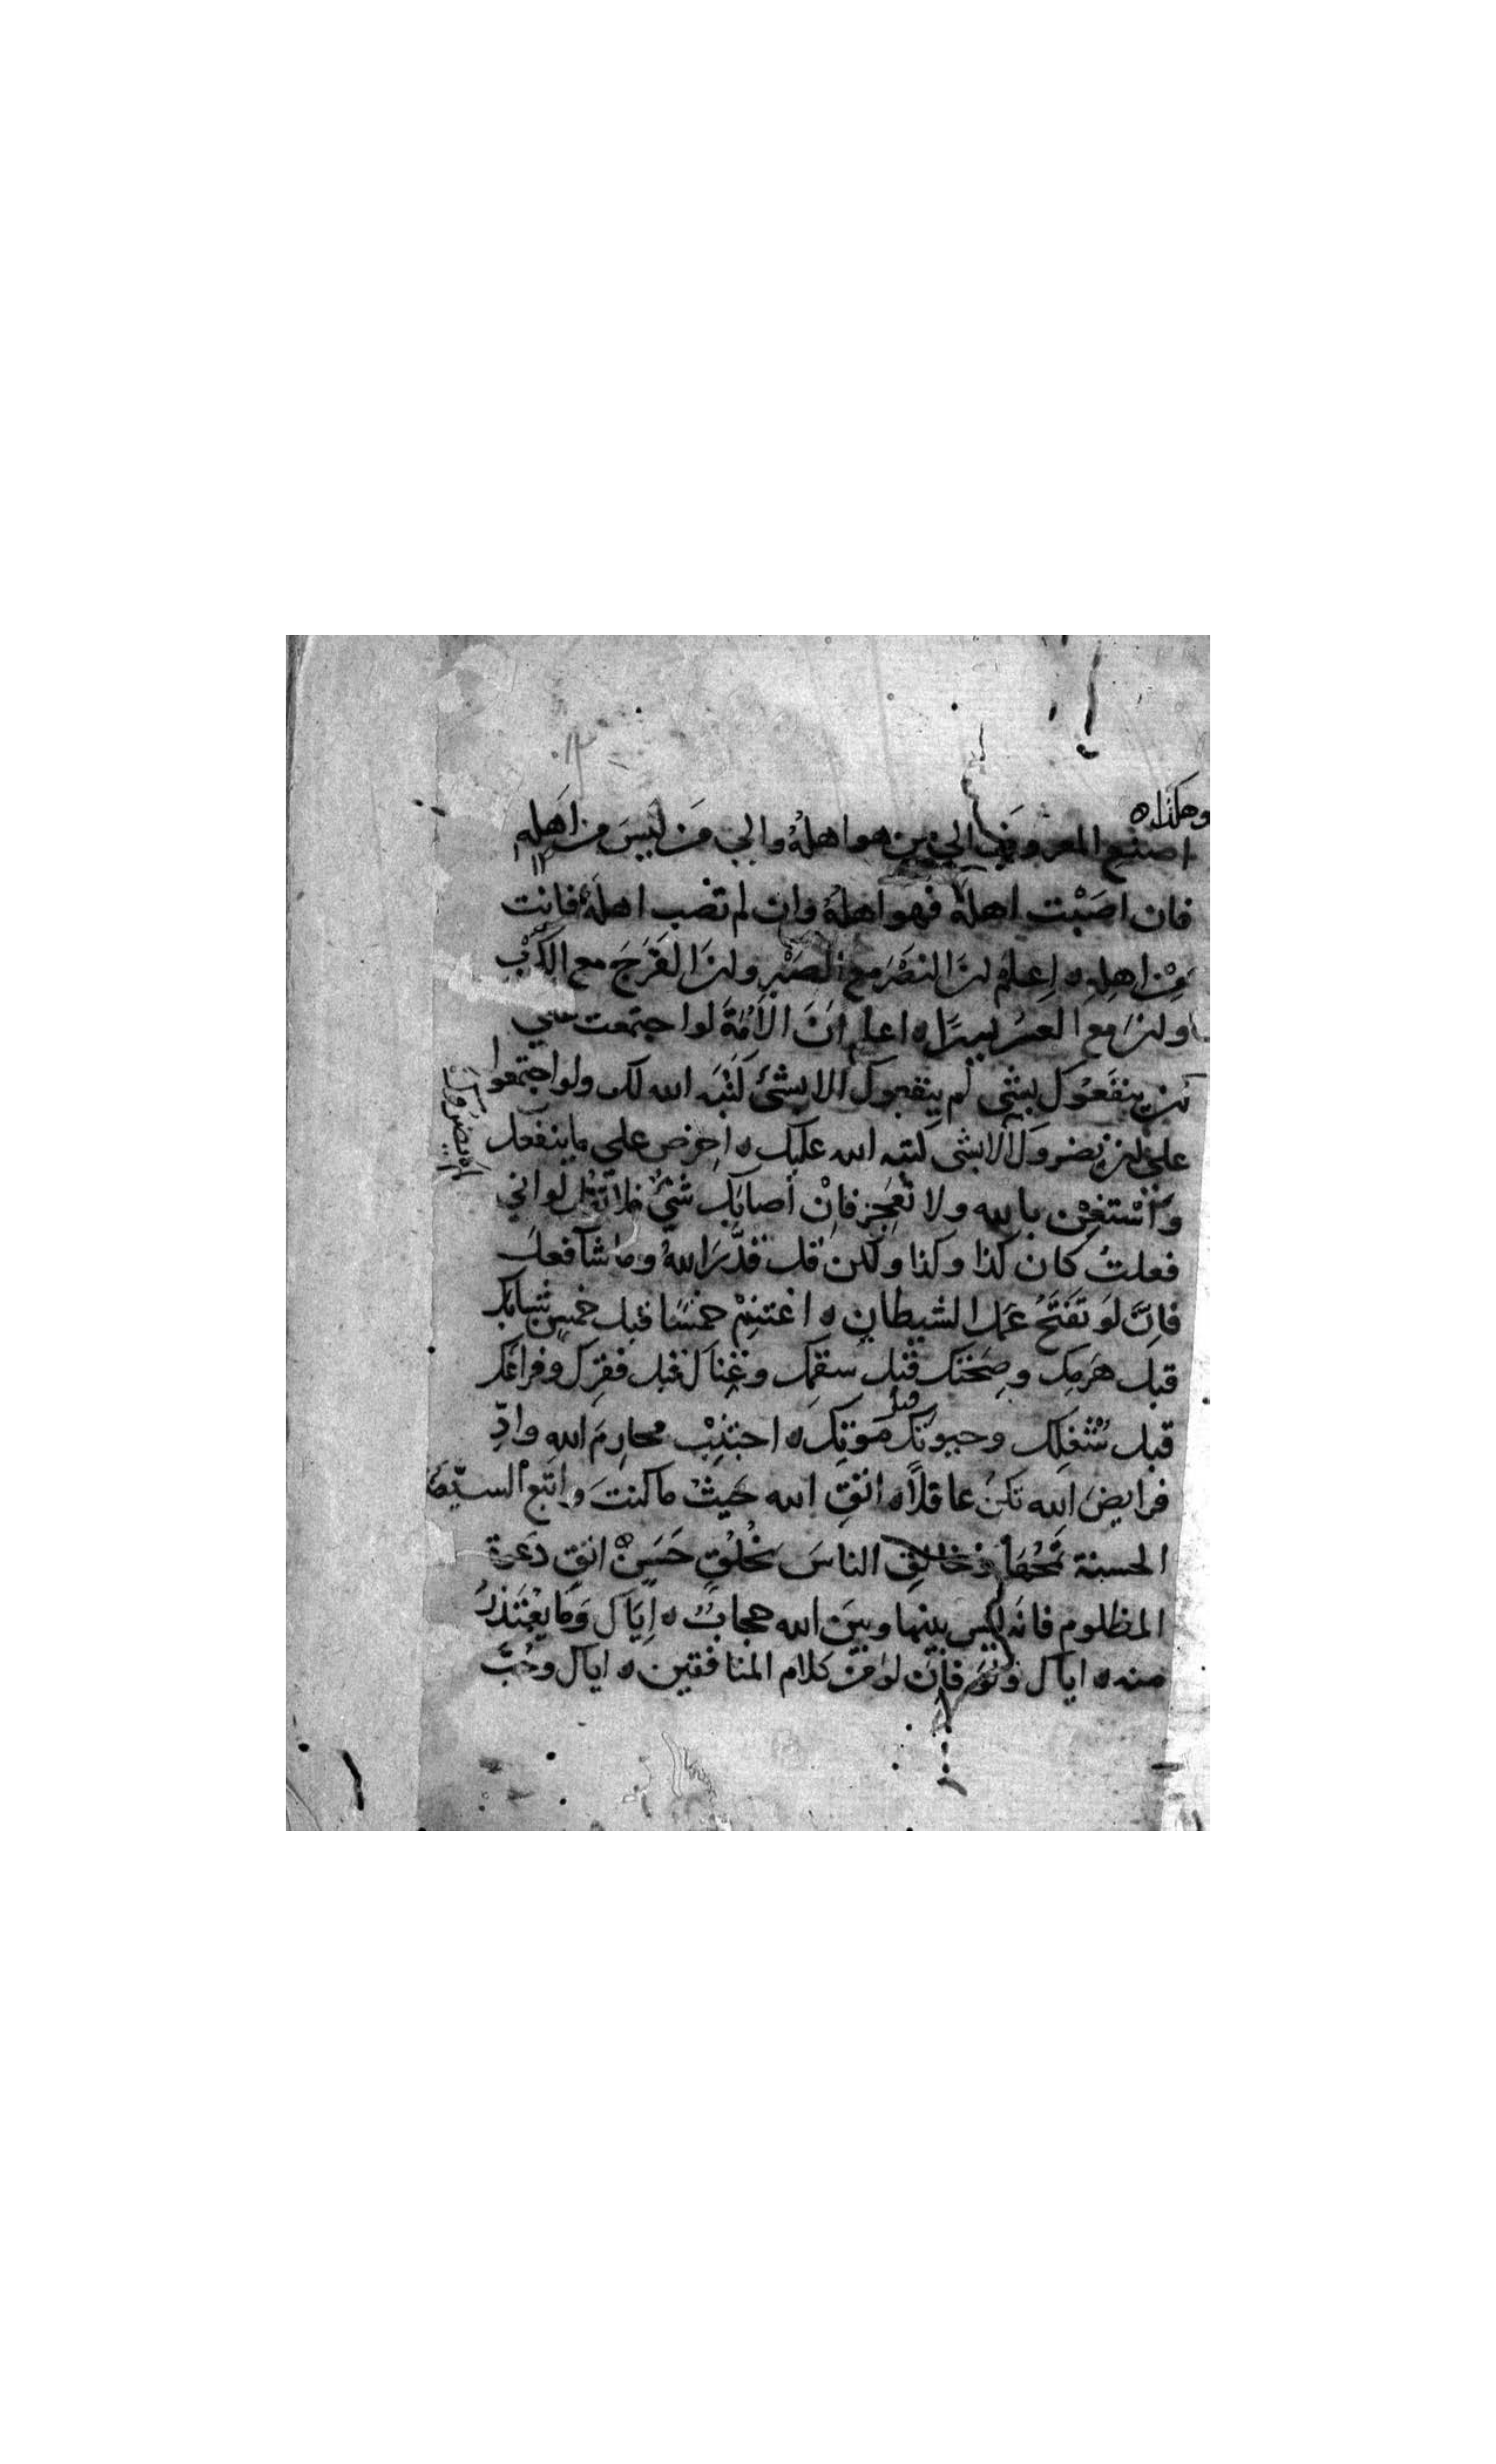 وهكذاه
اصنع المعروف الي من هو اهله والي من ليس من اهله
فان اصبت اهله فهو اهله وان لم تصب اهله فانت
من اهله ه اعلم ان النصر مع الصبر وان الفرج مع الكرب
وان مع العسر يسرا ه اعلم ان الامة لو اجتمعت علي
ان ينفعوك بشي لم ينفعوك الا بشئ كتبه الله لك ولو اجتمعوا
علي ان يضروك الا بشي كتبه الله عليك ه احرص علي ما ينفعك
لم يضروك
واستعن بالله ولا تعجز فان اصابك شئ فلا تقل لو اني
فعلت كان كذا وكذا ولكن قل قدر الله وما شآ فعل
فان لو تفتح عمل الشيطان ه اغتنم خمسا قبل خمس شبابك
قبل هرمك وصحتك قبل سقمك وغناك قبل فقرك وفراغك
قبل شغلك وحيوتك قبل موتك ه اجتنب محارم الله وادّ
فرايض الله تكن عاقلا ه اتق الله حيث ما كنت واتبع السيئة
الحسنة تمحها وخالق الناس بخلق حسن ه اتق دعوة
المظلوم فانه ليس بينها وبين الله حجاب ه اياك وما يعتذر
منه ه اياك ولو فان لو من كلام المنافقين ه اياك وحب